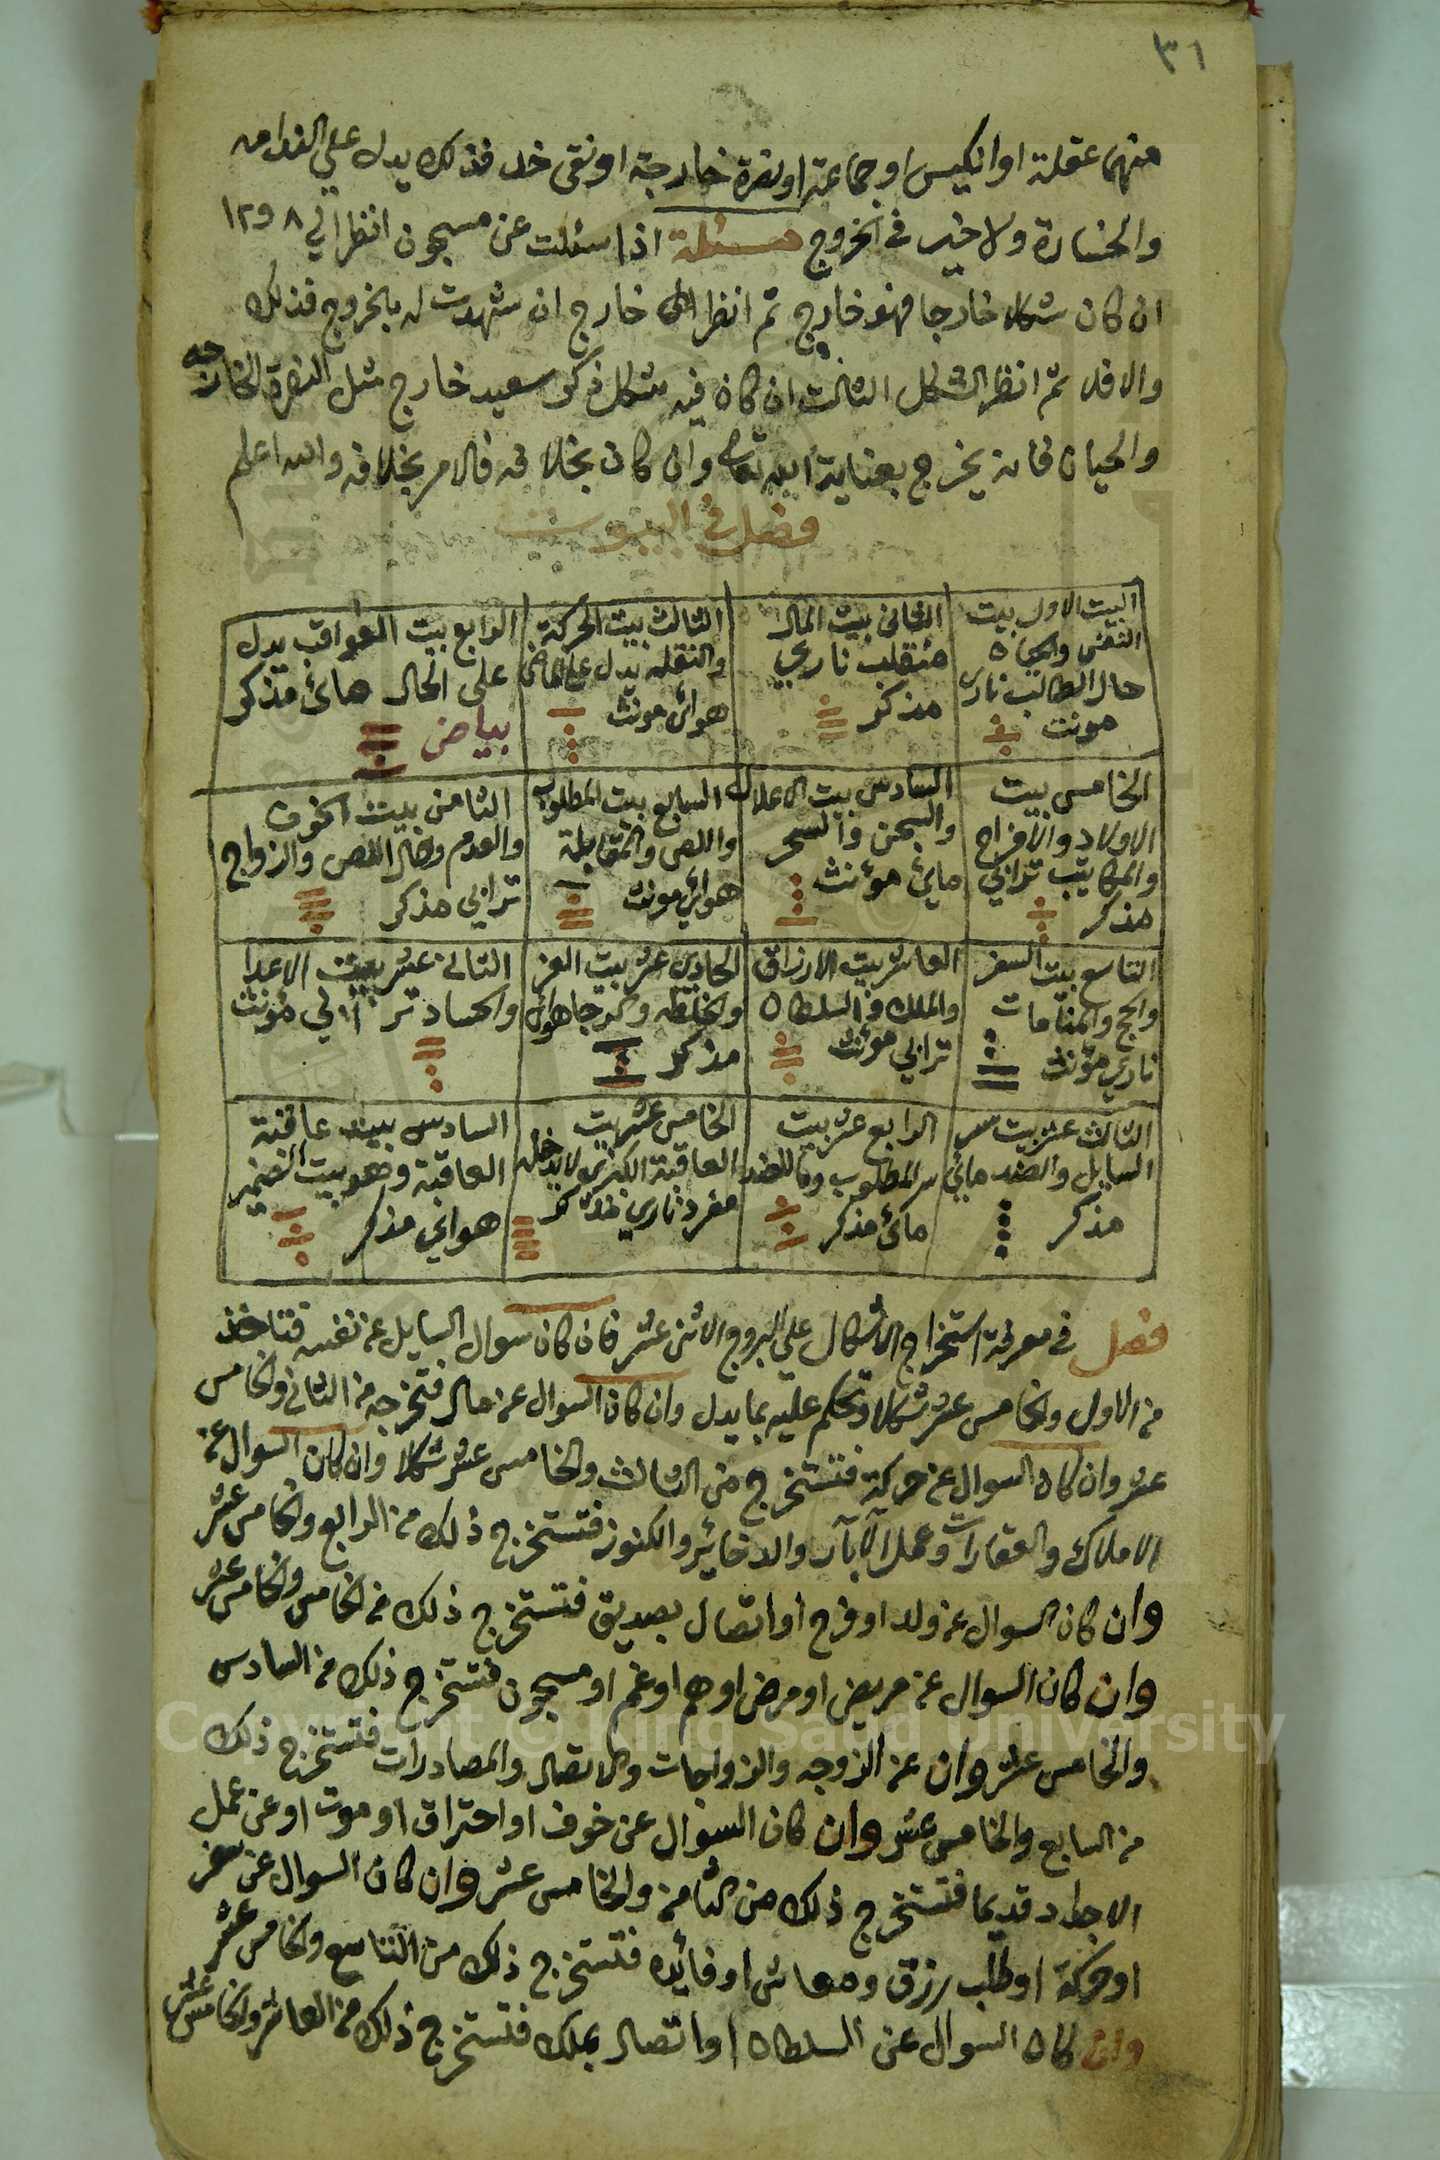 ٣١
منهما عقلة او انكيس او جماعة او نصرة خارجة او نقى خد فذلك يدل علي الغرامه
والخسارة ولا خير في الخروج مسئلة اذا سئلت عن مسجون انظر الي ٨ و ١٢
ان كان شكلا خارجا فهو خارج ثم انظر الى خارج ان شهدت له بالخروج فذلك
والا فلا ثم انظر الشكل الثالث ان كان فيه شكل ذكر سعيد خارج مثل النصرة الخارجه
والحيان فانه يخرج بعناية الله تعالى وان كان بخلافه فالامر بخلافه والله اعلم
فصل في البيوت
البيت الاول بيت
النفس والحياة
حال الطالب ناري
مونث
الثاني بيت المال
منقلب ناري
مذكر
الثالث بيت الحركة
والنقله يدل على الماضى
هوائي مونث
الرابع بيت العواقب يدل
على الحال مائ مذكر
بياض
الخامس بيت
الاولاد والافراح
والمكاتيب ترابي
مذكر
السادس بيت الاعلال
والسجن والسحر
مايئ مؤنث
السابع بيت المطلوب
واللص والمقابلة
هوائي مونث
الثامن بيت الخوف
والعدم ومال اللص والزواج
ترابي مذكر
التاسع بيت السفر
والحج والمنامات
ناري مؤنث
العاشر بيت الارزاق
والملك والسلطان
ترابي مؤنث
الحادي عشر بيت العز
والخلطه والرجا هوائي
مذكر
الثاني عشر بيت الاعدا
والحساد ترابي مؤنث
الثالث عشر بيت سر
السايل والضد مائي
مذكر
الرابع عشر بيت
سر المطلوب وما للضد
مائ مذكر
الخامس عشر بيت
العاقبة الكبرى ولا يدخله
مفرد ناري مذكر
السادس بيت عاقبة
العاقبة وهو بيت الضمير
هوائي مذكر
فصل في معرفة استخراج الاشكال علي البروج الاثنى عشر فان كان سوال السايل عن نفسه فتاخذ
من الاول والخامس عشر شكلا وتحكم عليه بما يدل وان كان السوال عن مال فتخرجه من الثاني والخامس
عشر وان كان السوال عن حركة فتستخرج من الثالث والخامس عشر شكلا وان كان السوال عن
الاملاك والعقارات وعمل الآبار والدخائر والكنوز فتستخرج ذلك من الرابع والخامس عشر
وان كان السوال عن ولد او فرح او اتصال بصديق فتستخرج ذلك من الخامس والخامس عشر
وان كان السوال عن مريض او مرض او هم او غم او مسجون فتستخرج ذلك من السادس
والخامس عشر وان عن الزوجه والزواجات والاتصال والمصادرات فتستخرج ذلك
من السابع والخامس عشر وان كان السوال عن خوف او احتراق او موت او عن عمل
الاجداد قديما فتستخرج ذلك من الثامن والخامس عشر وان كان السوال عن سفر
او حركة او طلب رزق ومعاش او فائده فتستخرج ذلك من التاسع والخامس عشر
وان كان السوال عن السلطان او اتصال بملك فتستخرج ذلك من العاشر والخامس عشر
Copyright © King Saud University